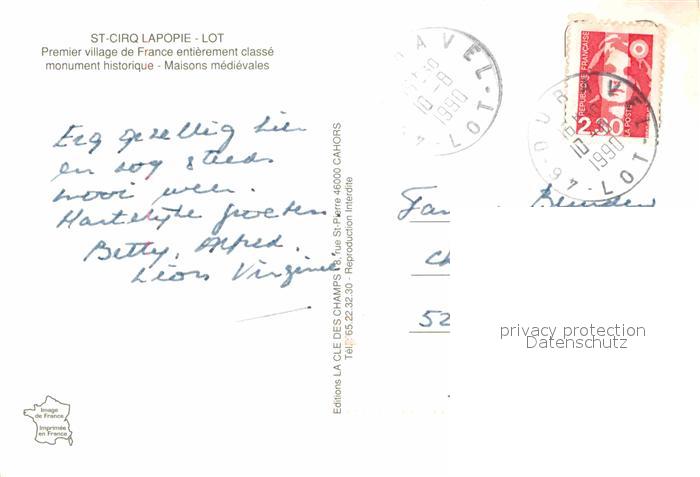 ST-CIRQ LAPOPIE - LOT
Premier village de France entièrement classé
monument historique - Maisons médiévales
Erg gezellig hier
en nog steeds
mooi weer.
Hartelijke groeten
Betty, Alfred,
Léon Virginie
Editions LA CLE DES CHAMPS - 8, rue St-Pierre 46000 CAHORS
Tél. 65.22.32.30 - Reproduction Interdite
Image
de France
Imprimée
en France
AVEL - LOT - 4
10 - 8
1990
REPUBLIQUE FRANÇAISE
2,30
LA POSTE
46 - DURAVEL - LOT
10
1990
Fam
52
privacy protection
Datenschutz